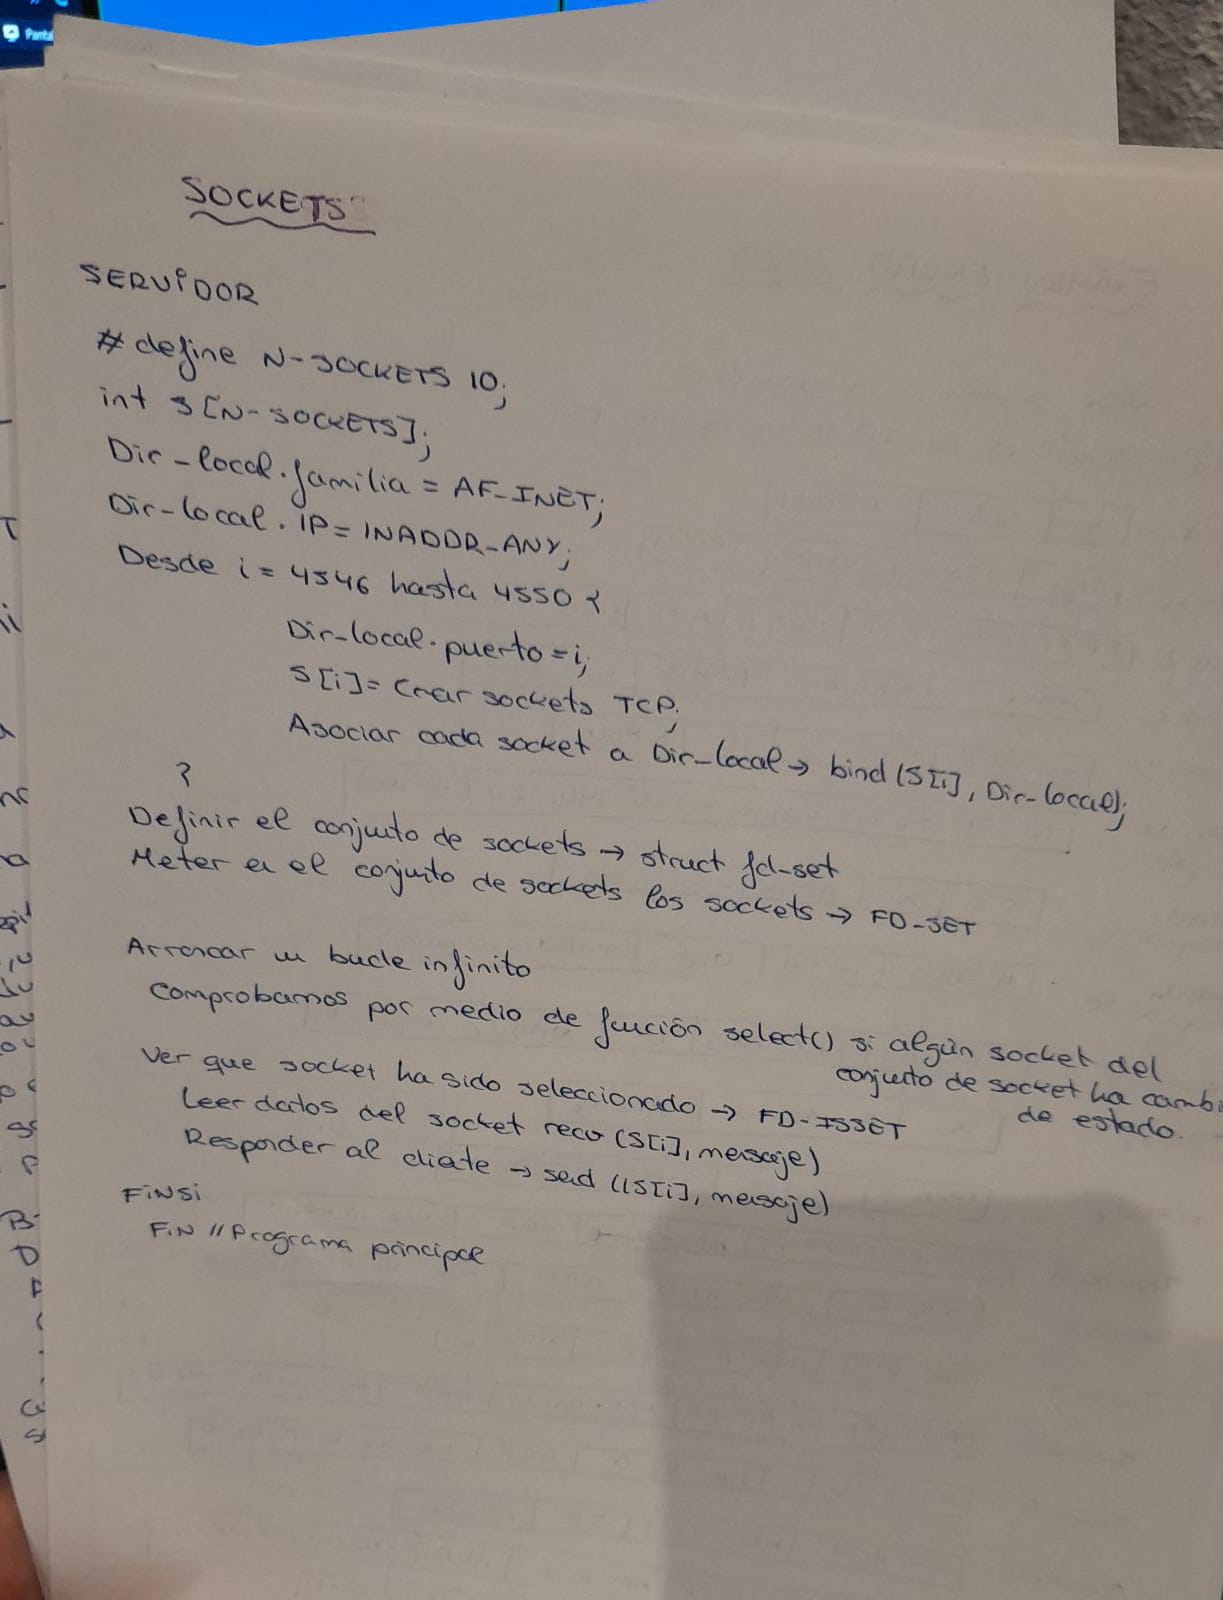 SOCKETS
SERVIDOR
# define N-SOCKETS 10;
int s[N-SOCKETS];
Dir-local.familia = AF-INET;
Dir-local.IP = INADDR-ANY;
Desde i = 4546 hasta 4550 {
Dir-local.puerto = i;
S[i] = Crear sockets TCP;
Asociar cada socket a Dir-local → bind (S[i], Dir-local);
}
Definir el conjunto de sockets → struct fd-set
Meter en el conjunto de sockets los sockets → FD-SET
Arrancar un bucle infinito
Comprobamos por medio de función select() si algún socket del
conjunto de socket ha cambi
de estado.
Ver que socket ha sido seleccionado → FD-ISSET
Leer datos del socket recv (S[i], mensaje)
Responder al cliente → send ((S[i], mensaje)
FINSI
FIN // Programa principal